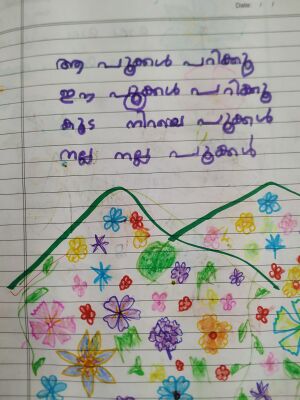 Date: / /
ആ പൂക്കൾ പറിക്കൂ
ഈ പൂക്കൾ പറിക്കൂ
കൂട നിറയെ പൂക്കൾ
നല്ല നല്ല പൂക്കൾ